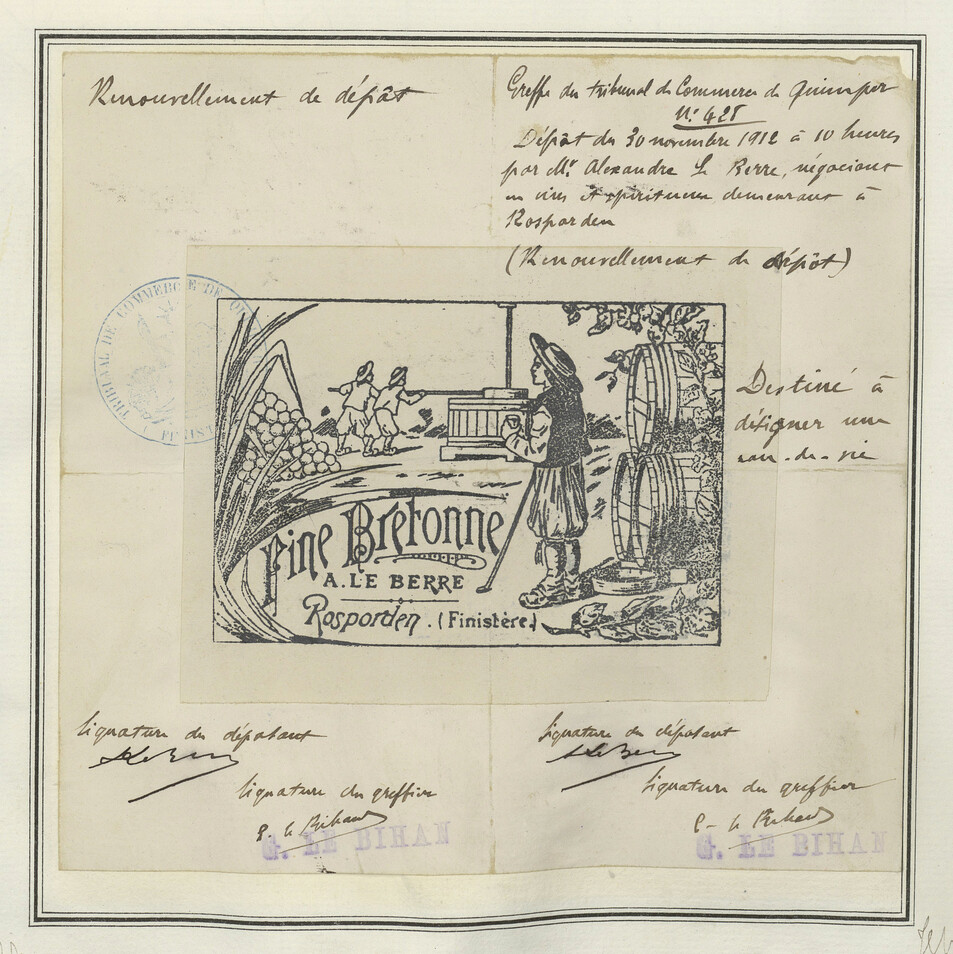 Renouvellement de dépôt
Greffe du tribunal de Commerce de Quimper
N° 428
Dépôt du 30 novembre 1912 à 10 heures
par Mr. Alexandre Le Berre, négociant
en vins et spiritueux demeurant à
Rosporden
(Renouvellement de dépôt)
TRIBUNAL DE COMMERCE DE
Destiné à
désigner une
eau-de-vie
Fine Bretonne
A. LE BERRE
Rosporden. (Finistère.)
Signature du déposant
A Le Berre
Signature du greffier
G. Le Bihan
G. LE BIHAN
Signature du déposant
A Le Berre
Signature du greffier
G. Le Bihan
G. LE BIHAN